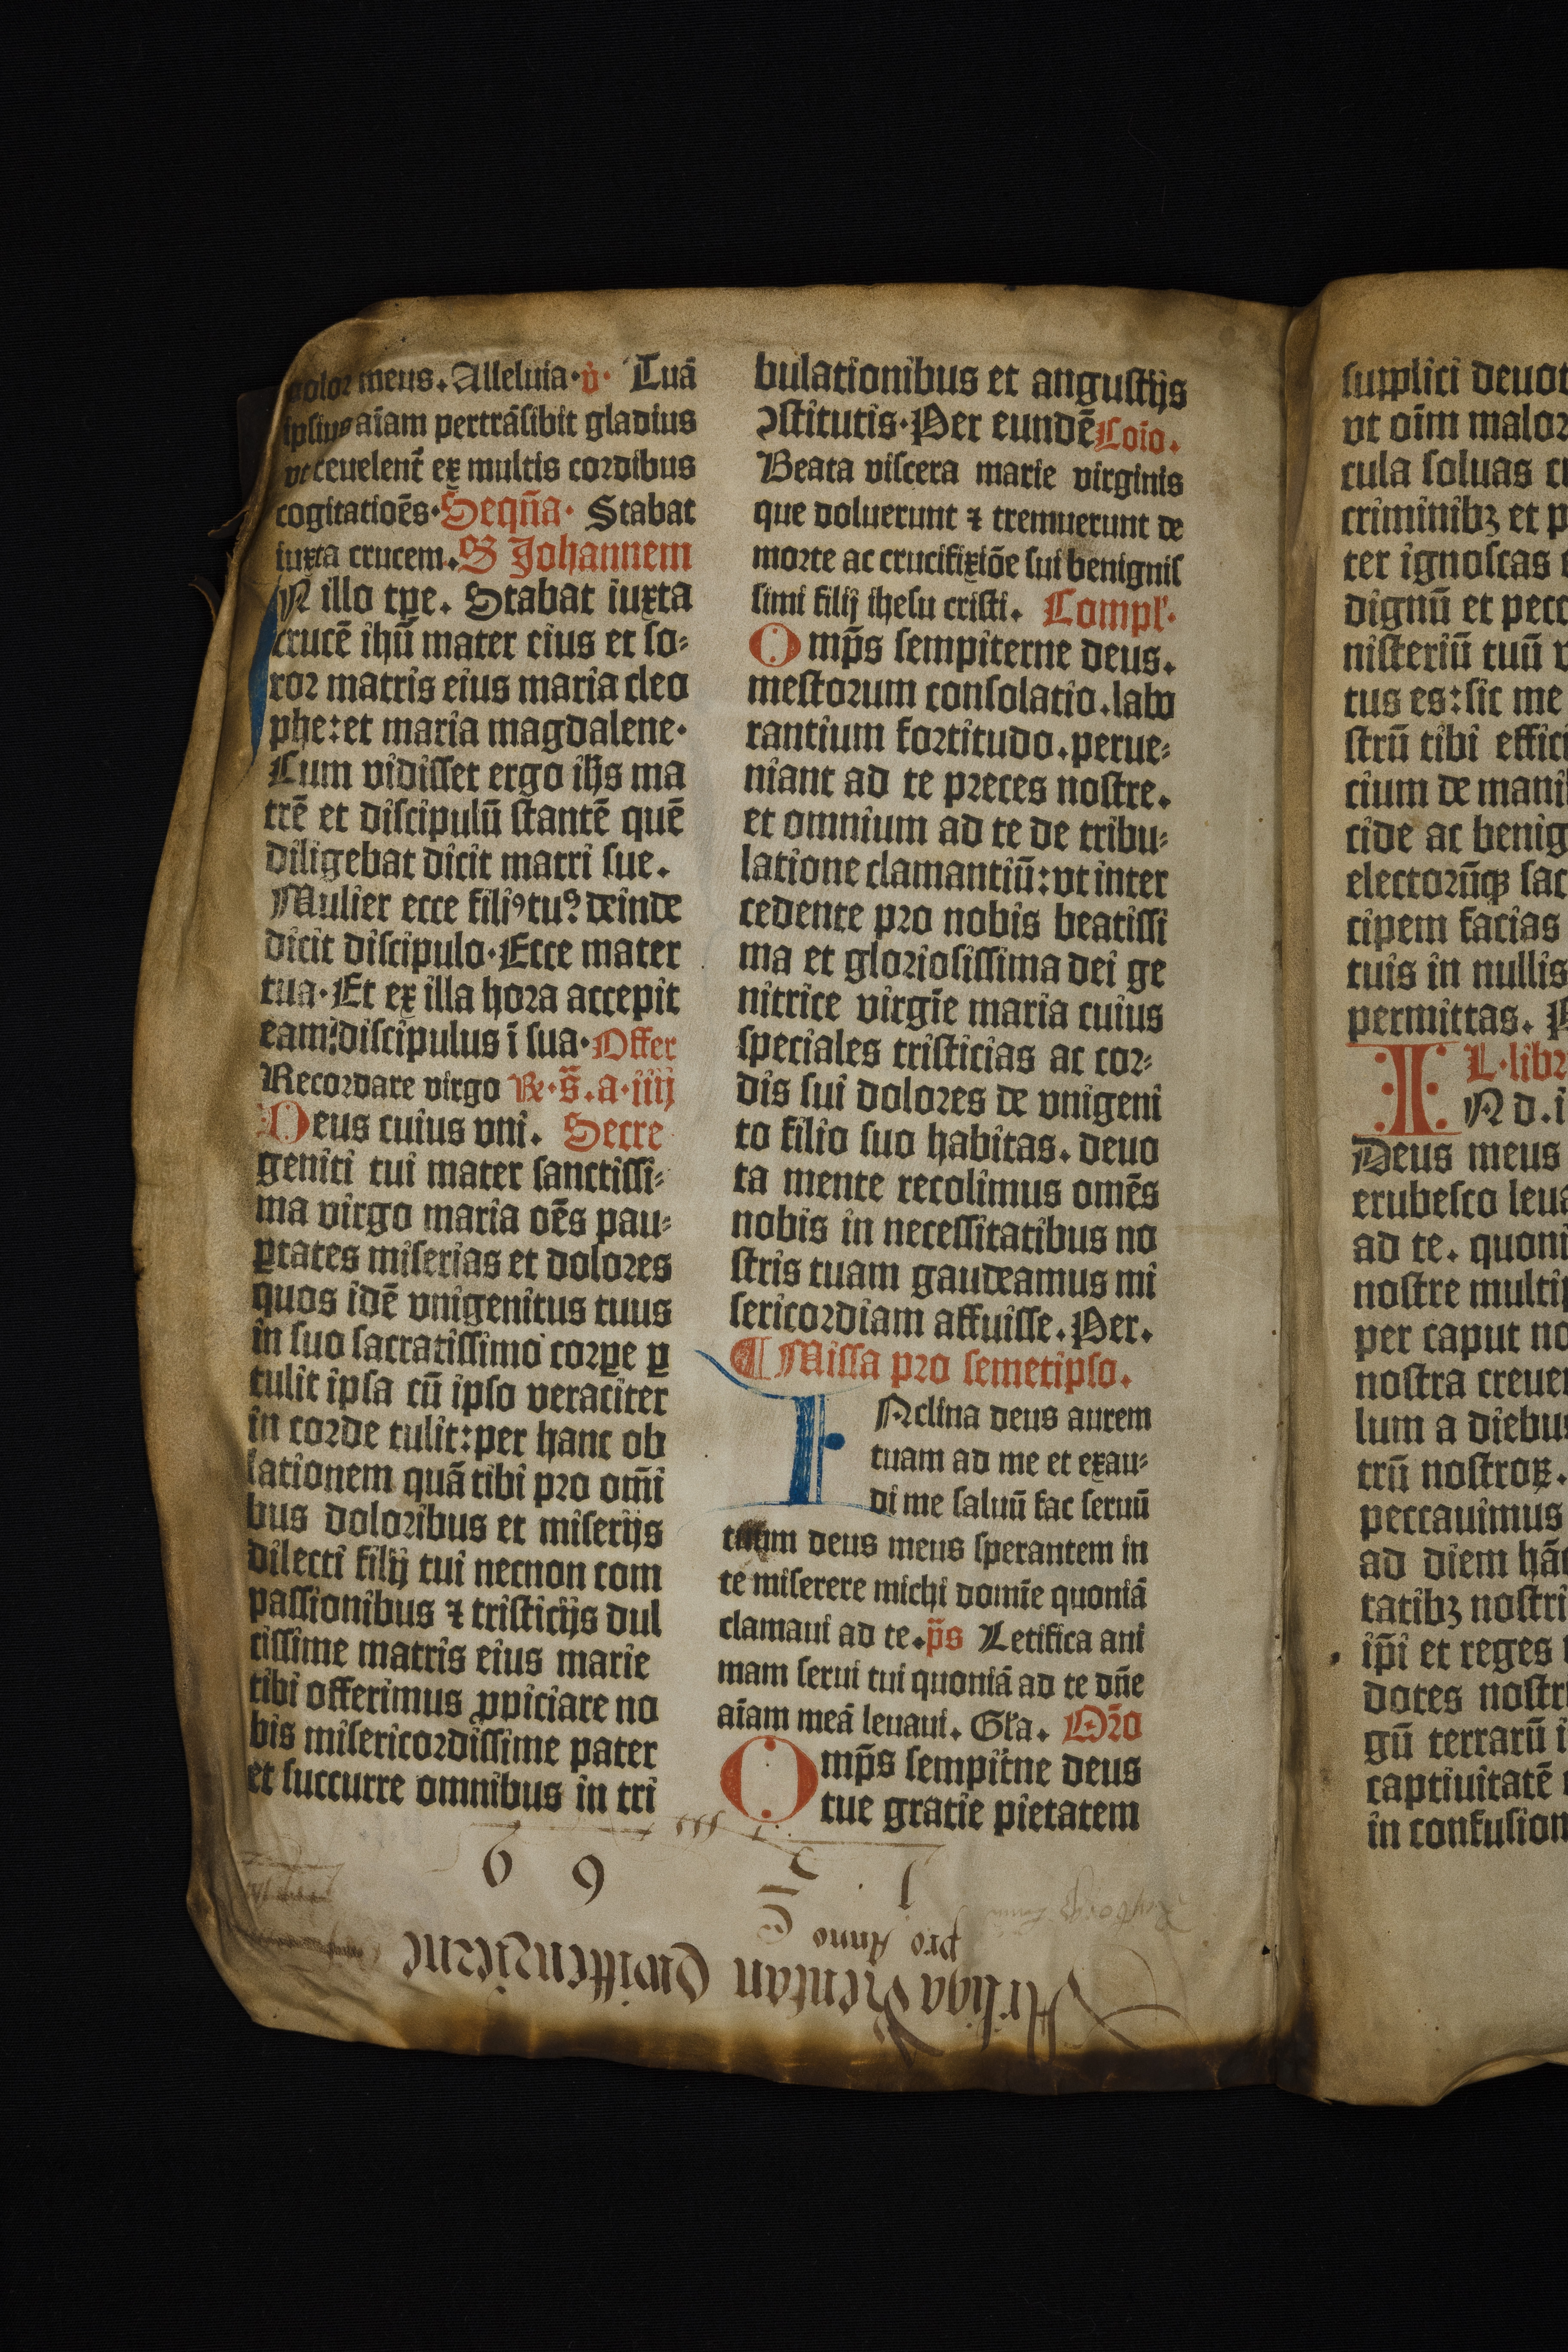 dolor meus. Alleluia. v̇. Tuā
ipsiꝰ aīam pertrāsibit gladius
vt reuelent̄ ex multis cordibus
cogitatiōes. Seqn̄a. Stabat
iuxta crucem. S Johannem
N illo tꝑe. Stabat iuxta
crucē ihū mater eius et so⸗
ror matris eius maria cleo
phe: et maria magdalene.
Cum vidisset ergo ihs ma
trē et discipulū stantē quē
diligebat dicit matri sue.
Mulier ecce filiꝰ tuꝰ deinde
dicit discipulo. Ecce mater
tua. Et ex illa hora accepit
eam discipulus ī sua. Offer
Recordare virgo ℟. s̄. a. iiij
Deus cuius vni. Secre
geniti tui mater sanctissi⸗
ma virgo maria oēs pau⸗
ꝑtates miserias et dolores
quos idē vnigenitus tuus
in suo sacratissimo corꝑe ꝑ
tulit ipsa cū ipso veraciter
in corde tulit: per hanc ob
lationem quā tibi pro om̄i
bus doloribus et miserijs
dilecti filij tui necnon com
passionibus ⁊ tristicijs dul
cissime matris eius marie
tibi offerimus ꝓpiciare no
bis misericordissime pater
et succurre omnibus in tri
bulationibus et angustijs
ꝯstitutis. Per eundē Cōio.
Beata viscera marie virginis
que doluerunt ⁊ tremuerunt de
morte ac crucifixiōe sui benignis
simi filij ihesu cristi. Compl̄.
Omp̄s sempiterne deus.
mestorum consolatio. labo
rantium fortitudo. perue⸗
niant ad te preces nostre.
et omnium ad te de tribu⸗
latione clamantiū: vt inter
cedente pro nobis beatissi
ma et gloriosissima dei ge
nitrice virgīe maria cuius
speciales tristicias ac cor⸗
dis sui dolores de vnigeni
to filio suo habitas. deuo
ta mente recolimus omēs
nobis in necessitatibus no
stris tuam gaudeamus mi
sericordiam affuisse. Per.
¶ Missa pro semetipso.
INclina deus aurem
tuam ad me et exau⸗
di me saluū fac seruū
tuum deus meus sperantem in
te miserere michi domīe quoniā
clamaui ad te. p̄s Letifica ani
mam serui tui quoniā ad te dn̄e
aīam meā leuaui. Gl̄a. Or̄o
Omp̄s sempit̄ne deus
tue gratie pietatem
Årliga Rentan
pro Anno
1
6 9
supplici deuot
vt oīm malor
cula soluas cu
criminibꝫ et p
ter ignoscas
dignū et pecc
nisteriū tuū v
tus es: sic me
strū tibi effici
cium de mani
cide ac benig
electorūqꝫ sac
cipem facias
tuis in nullis
permittas. P
L. libr
IN d. i
Deus meus
erubesco leua
ad te. quoni
nostre multip
per caput no
nostra creuer
lum a diebus
trū nostroꝝ.
peccauimus
ad diem hāc
tatibꝫ nostri
ip̄i et reges
dotes nostr
gū terrarū i
captiuitatē
in confusion